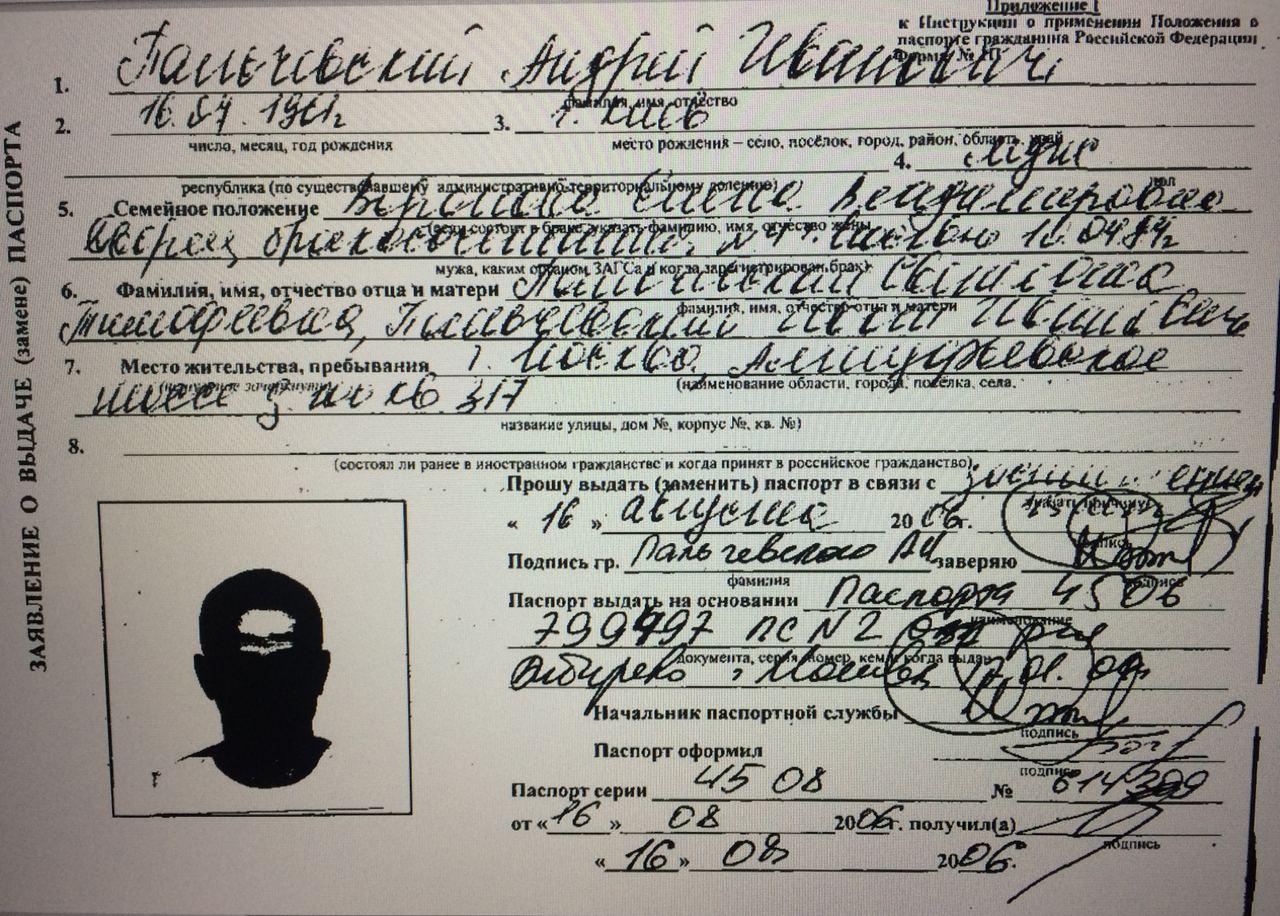 Приложение 1
к Инструкции о применении Положения о
паспорте гражданина Российской Федерации
Форма № 1П
ЗАЯВЛЕНИЕ О ВЫДАЧЕ (замене) ПАСПОРТА
1. Пальчевский Андрей Иванович
фамилия, имя, отчество
2. 16. 1961г 3. г. Киев
число, месяц, год рождения место рождения – село, посёлок, город, район, область, край
4. муж
пол
республика (по существовавшему административно-территориальному делению)
5. Семейное положение Елена Владимировна
Дворец бракосочетания N4 10.04.84г
(если состоит в браке, указать фамилию, имя, отчество жены,
мужа, каким органом ЗАГСа и когда зарегистрирован брак)
6. Фамилия, имя, отчество отца и матери Светлана
фамилия, имя, отчество отца и матери
Тимофеевна, Пальчевский Иван Иванович
7. Место жительства, пребывания г. Москва, Алтуфьевское
(ненужное зачеркнуть) (наименование области, города, посёлка, села,
шоссе кв 317
название улицы, дом №, корпус №, кв. №)
8.
(состоял ли ранее в иностранном гражданстве и когда принят в российское гражданство)
Прошу выдать (заменить) паспорт в связи с
указать причину
« 16 » августа 20 06 г.
подпись
Подпись гр. Пальчевского АИ заверяю
фамилия подпись
Паспорт выдать на основании Паспорта 45 06
наименование
799497 ПС N2 ОВД р-на
документа, серия, номер, кем и когда выдан
Бибирево г. Москвы
Начальник паспортной службы
подпись
Паспорт оформил
подпись
Паспорт серии 45 08 №
от « 16 » 08 2006г. получил(а)
подпись
« 16 » 08 2006.